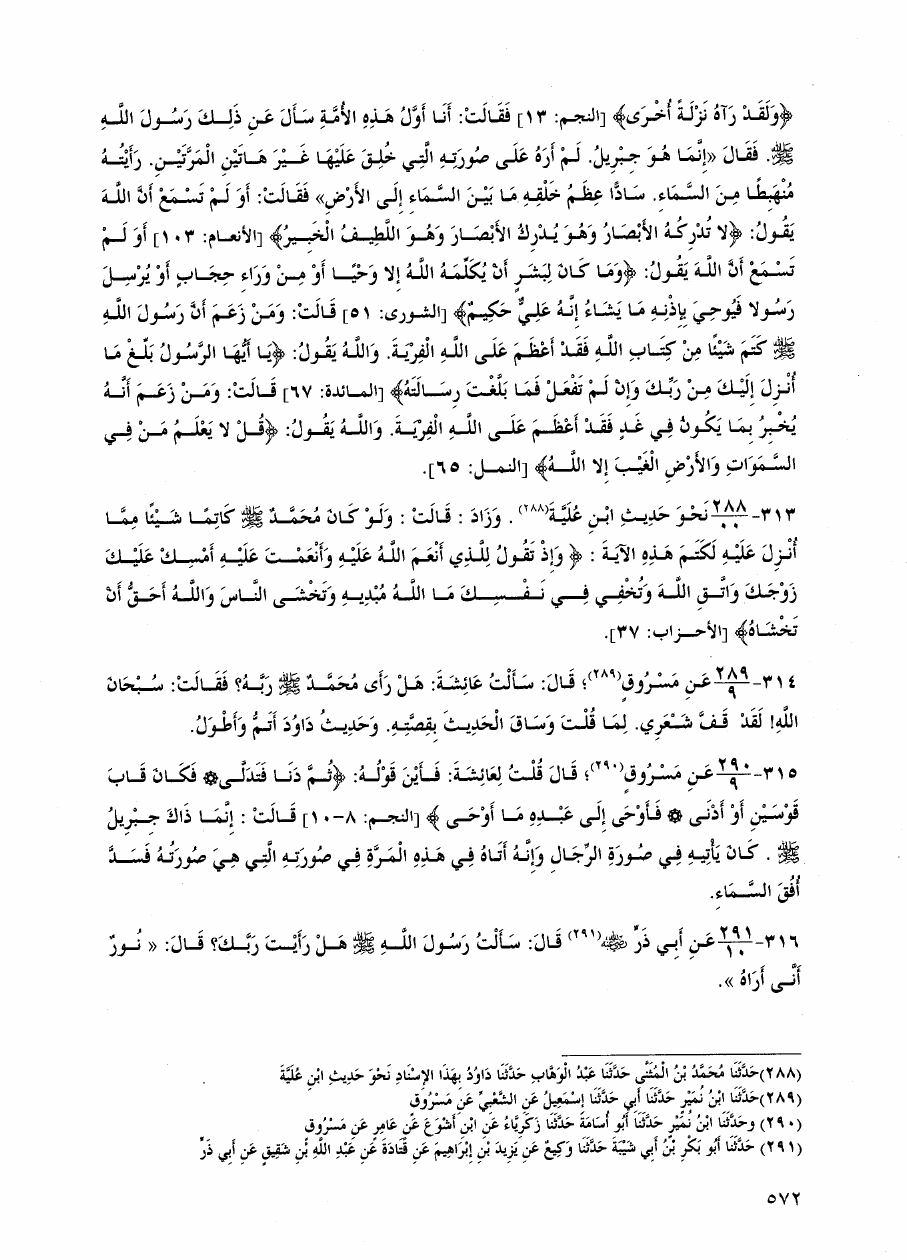 ﴿وَلَقَدْ رَآهُ نَزْلَةً أُخْرَى﴾ [النجم: ١٣] فَقَالَتْ: أَنَا أَوَّلُ هَذِهِ الأُمَّةِ سَأَلَ عَنْ ذَلِكَ رَسُولَ اللهِ
ﷺ. فَقَالَ «إِنَّمَا هُوَ جِبْرِيلُ. لَمْ أَرَهُ عَلَى صُورَتِهِ الَّتِي خُلِقَ عَلَيْهَا غَيْرَ هَاتَيْنِ الْمَرَّتَيْنِ. رَأَيْتُهُ
مُنْهَبِطًا مِنَ السَّمَاءِ. سَادًّا عِظَمُ خَلْقِهِ مَا بَيْنَ السَّمَاءِ إِلَى الأَرْضِ» فَقَالَتْ: أَوَ لَمْ تَسْمَعْ أَنَّ اللهَ
يَقُولُ: ﴿لا تُدْرِكُهُ الأَبْصَارُ وَهُوَ يُدْرِكُ الأَبْصَارَ وَهُوَ اللَّطِيفُ الْخَبِيرُ﴾ [الأنعام: ١٠٣] أَوَ لَمْ
تَسْمَعْ أَنَّ اللهَ يَقُولُ: ﴿وَمَا كَانَ لِبَشَرٍ أَنْ يُكَلِّمَهُ اللهُ إِلا وَحْيًا أَوْ مِنْ وَرَاءِ حِجَابٍ أَوْ يُرْسِلَ
رَسُولا فَيُوحِيَ بِإِذْنِهِ مَا يَشَاءُ إِنَّهُ عَلِيٌّ حَكِيمٌ﴾ [الشورى: ٥١] قَالَتْ: وَمَنْ زَعَمَ أَنَّ رَسُولَ اللهِ
ﷺ كَتَمَ شَيْئًا مِنْ كِتَابِ اللهِ فَقَدْ أَعْظَمَ عَلَى اللهِ الْفِرْيَةَ. وَاللهُ يَقُولُ: ﴿يَا أَيُّهَا الرَّسُولُ بَلِّغْ مَا
أُنْزِلَ إِلَيْكَ مِنْ رَبِّكَ وَإِنْ لَمْ تَفْعَلْ فَمَا بَلَّغْتَ رِسَالَتَهُ﴾ [المائدة: ٦٧] قَالَتْ: وَمَنْ زَعَمَ أَنَّهُ
يُخْبِرُ بِمَا يَكُونُ فِي غَدٍ فَقَدْ أَعْظَمَ عَلَى اللهِ الْفِرْيَةَ. وَاللهُ يَقُولُ: ﴿قُلْ لا يَعْلَمُ مَنْ فِي
السَّمَوَاتِ وَالأَرْضِ الْغَيْبَ إِلا اللهُ﴾ [النمل: ٦٥].
٣١٣-٢٨٨/٠٠ نَحْوَ حَدِيثِ ابْنِ عُلَيَّةَ(٢٨٨). وَزَادَ : قَالَتْ : وَلَوْ كَانَ مُحَمَّدٌ ﷺ كَاتِمًا شَيْئًا مِمَّا
أُنْزِلَ عَلَيْهِ لَكَتَمَ هَذِهِ الآيَةَ : ﴿ وَإِذْ تَقُولُ لِلَّذِي أَنْعَمَ اللهُ عَلَيْهِ وَأَنْعَمْتَ عَلَيْهِ أَمْسِكْ عَلَيْكَ
زَوْجَكَ وَاتَّقِ اللهَ وَتُخْفِي فِي نَفْسِكَ مَا اللهُ مُبْدِيهِ وَتَخْشَى النَّاسَ وَاللهُ أَحَقُّ أَنْ
تَخْشَاهُ﴾ [الأحزاب: ٣٧].
٣١٤-٢٨٩/٩ عَنِ مَسْرُوقٍ(٢٨٩)؛ قَالَ: سَأَلْتُ عَائِشَةَ: هَلْ رَأَى مُحَمَّدٌ ﷺ رَبَّهُ؟ فَقَالَتْ: سُبْحَانَ
اللهِ! لَقَدْ قَفَّ شَعْرِي. لِمَا قُلْتَ وَسَاقَ الْحَدِيثَ بِقِصَّتِهِ. وَحَدِيثُ دَاوُدَ أَتَمُّ وَأَطْوَلُ.
٣١٥-٢٩٠/٩ عَنِ مَسْرُوقٍ(٢٩٠)؛ قَالَ قُلْتُ لِعَائِشَةَ: فَأَيْنَ قَوْلُهُ: ﴿ثُمَّ دَنَا فَتَدَلَّى۞ فَكَانَ قَابَ
قَوْسَيْنِ أَوْ أَدْنَى ۞ فَأَوْحَى إِلَى عَبْدِهِ مَا أَوْحَى ﴾ [النجم: ٨-١٠] قَالَتْ : إِنَّمَا ذَاكَ جِبْرِيلُ
ﷺ . كَانَ يَأْتِيهِ فِي صُورَةِ الرِّجَالِ وَإِنَّهُ أَتَاهُ فِي هَذِهِ الْمَرَّةِ فِي صُورَتِهِ الَّتِي هِيَ صُورَتُهُ فَسَدَّ
أُفُقَ السَّمَاءِ.
٣١٦-٢٩١/١٠ عَنِ أَبِي ذَرٍّ ﷺ(٢٩١) قَالَ: سَأَلْتُ رَسُولَ اللهِ ﷺ هَلْ رَأَيْتَ رَبَّكَ؟ قَالَ: « نُورٌ
أَنَّى أَرَاهُ ».
(٢٨٨)حَدَّثَنَا مُحَمَّدُ بْنُ الْمُثَنَّى حَدَّثَنَا عَبْدُ الْوَهَّابِ حَدَّثَنَا دَاوُدُ بِهَذَا الإِسْنَادِ نَحْوَ حَدِيثِ ابْنِ عُلَيَّةَ
(٢٨٩)حَدَّثَنَا ابْنُ نُمَيْرٍ حَدَّثَنَا أَبِي حَدَّثَنَا إِسْمَعِيلُ عَنِ الشَّعْبِيِّ عَنِ مَسْرُوقٍ
(٢٩٠) وحَدَّثَنَا ابْنُ نُمَيْرٍ حَدَّثَنَا أَبُو أُسَامَةَ حَدَّثَنَا زَكَرِيَّاءُ عَنِ ابْنِ أَشْوَعَ عَنِ عَامِرٍ عَنِ مَسْرُوقٍ
(٢٩١) حَدَّثَنَا أَبُو بَكْرِ بْنُ أَبِي شَيْبَةَ حَدَّثَنَا وَكِيعٌ عَنْ يَزِيدَ بْنِ إِبْرَاهِيمَ عَنِ قَتَادَةَ عَنِ عَبْدِ اللهِ بْنِ شَقِيقٍ عَنِ أَبِي ذَرٍّ
٥٧٢